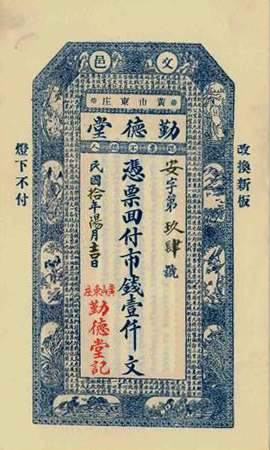 文邑
黃山東庄
勤德堂
認票不認人
改換新板
安字第玖肆號
憑票面付市錢壹仟文
民國拾年陽月吉日
黃山東庄
勤德堂記
燈下不付